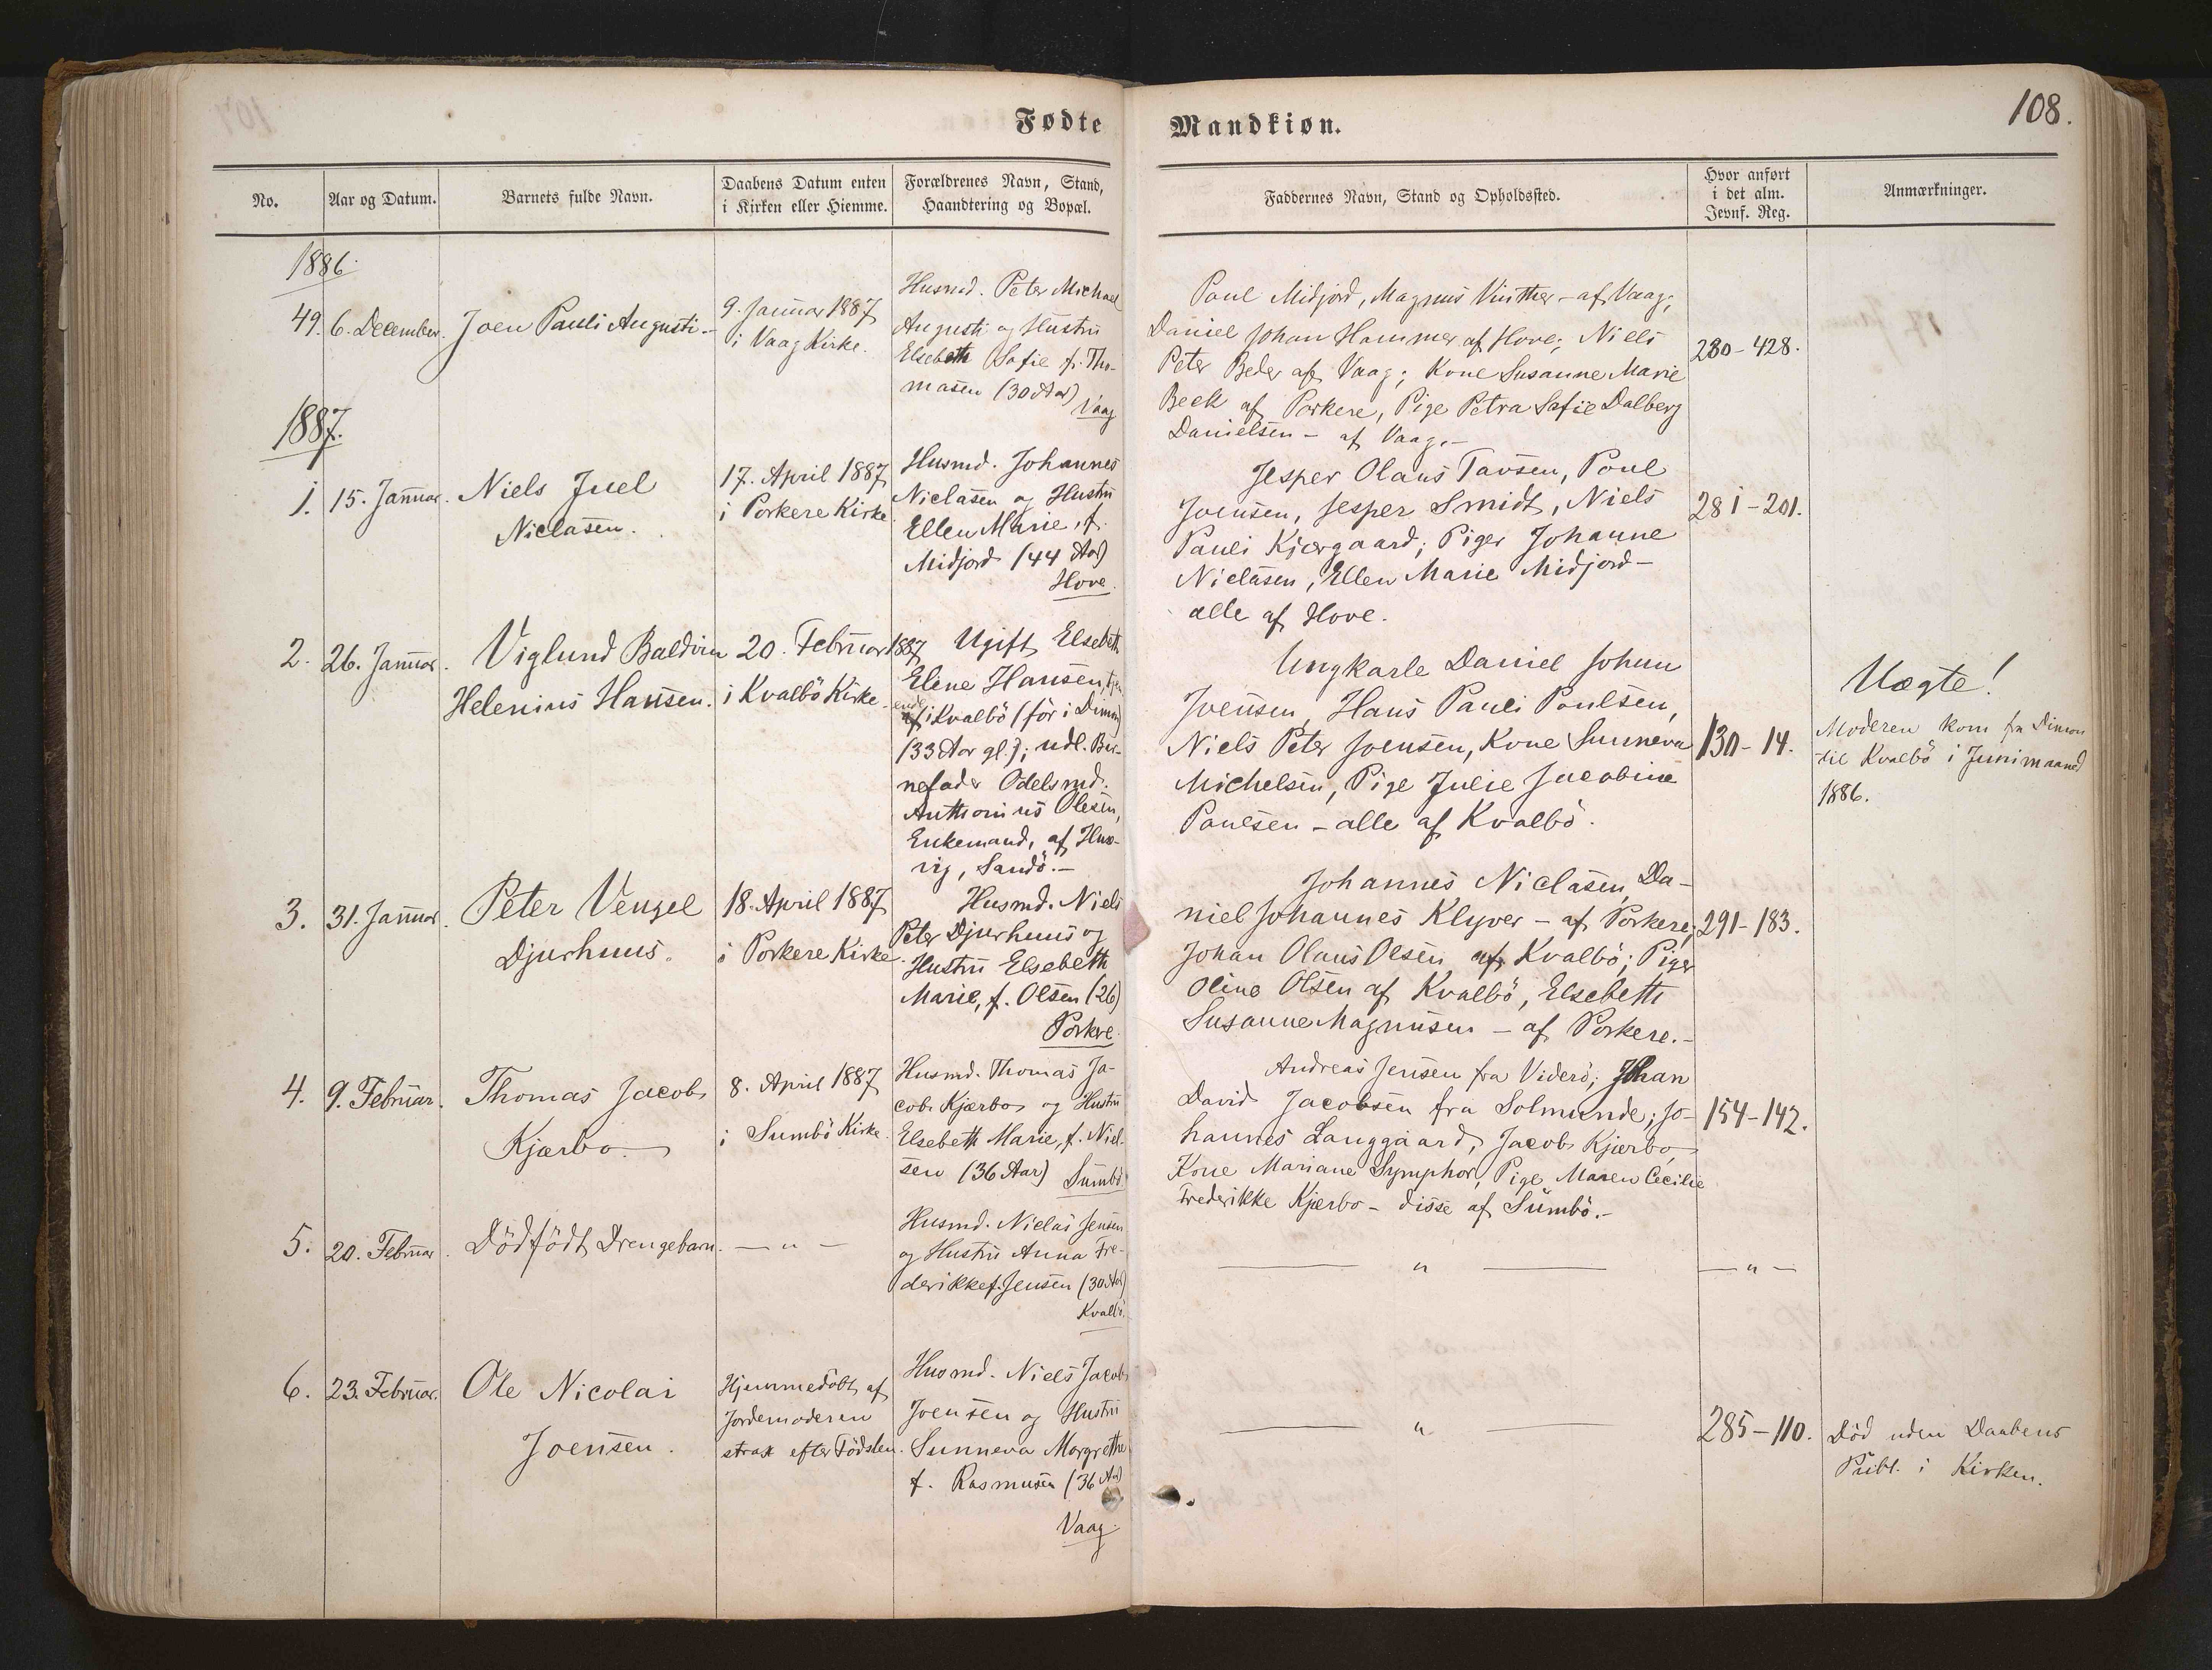 Fødte Mandkiøn.
108.
No.
Aar og Datum.
Barnets fulde Navn.
Daabens Datum enten
i Kirken eller Hiemme.
Forældrenes Navn, Stand,
Haandtering og Bopæl.
Faddernes Navn, Stand og Opholdssted.
Hvor anført
i det alm.
Jevnf. Reg.
Anmærkninger.
1886.
49.
6. December.
Joen Pauli Augusti.-
9. Januar 1887
i Vaag Kirke.
Husmd. Peter Michael
Augusti og Hustru
Elsebeth Sofie f. Tho-
masen (30 Aar)
Vaag
Poul Midjord, Magnus Vinther - af Vaag;
Daniel Johan Hammer af Hove; Niels
Peter Beder af Vaag; Kone Susanne Marie
Beck af Porkere, Pige Petra Sofie Dalberg
Danielsen - af Vaag.-
280-428.
1887.
1.
15. Januar.
Niels Juel
Niclasen.
17. April 1887
i Porkere Kirke
Husmd. Johannes
Niclasen og Hustru
Ellen Marie, f.
Midjord (44 Aar)
Hove.
Jesper Olaus Tausen, Poul
Joensen, Jesper Smidt, Niels
Pauli Kjærgaard; Piger Johanne
Niclasen, Ellen Marie Midjord-
alle af Hove.
281-201.
2.
26. Januar.
Viglund Baldvin
Helenius Hansen.
20. Februar 1887
i Kvalbö Kirke.
Ugift Elsebeth
Elene Hansen, tjen
ende
i Kvalbö (för i Dimon)
(33 Aar gl.); udl. Bar-
nefader Odelsmd.
Anthonius Olesen,
Enkemand, af Husa-
vig, Sandö.-
Ungkarle Daniel Johan
Joensen, Hans Pauli Poulsen,
Niels Peter Joensen, Kone Sunneva
Michelsen, Pige Julie Jacobine
Poulsen - alle af Kvalbö.
130-14.
Uægte!
Moderen kom fra Dimon
til Kvalbö i Junimaaned
1886.
3.
31. Januar.
Peter Vengel
Djurhuus.
18. April 1887
i Porkere Kirke.
Husmd. Niels
Peter Djurhuus og
Hustru Elsebeth
Marie, f. Olsen (26)
Porkere.
Johannes Niclasen, Da-
niel Johannes Klyver - af Porkere;
Johan Olaus Olsen af Kvalbö; Piger
Oline Olsen af Kvalbö, Elsebeth
Susanne Magnusen - af Porkere.-
291-183.
4.
9. Februar.
Thomas Jacob
Kjærbo
8. April 1887
i Sumbö Kirke.
Husmd. Thomas Ja-
cob Kjærbo og Hustru
Elsebeth Marie, f. Niel-
sen (36 Aar) Sumbö.
Andreas Jensen fra Viderö; Johan
David Jacobsen fra Solmunde; Jo-
hannes Langgaard, Jacob Kjærbo,
Kone Mariane Symphor, Pige Maren Cecilie
Frederikke Kjærbo - disse af Sumbö.-
154-142.
5.
20. Februar.
Dödfödt Drengebarn.
— " —
Husmd. Niclas Jensen
og Hustru Anna Fre-
derikke f. Jensen (30 Aar)
Kvalbö.
— " —
— " —
6.
23. Februar.
Ole Nicolai
Joensen.
Hjemmedöbt af
Jordemoderen
strax efter Födslen.
Husmd. Niels Jacob
Joensen og Hustru
Sunneva Margrethe
f. Rasmusen (36 Aar)
Vaag.
— " —
285-110.
Död uden Daabens
Publ. i Kirken.